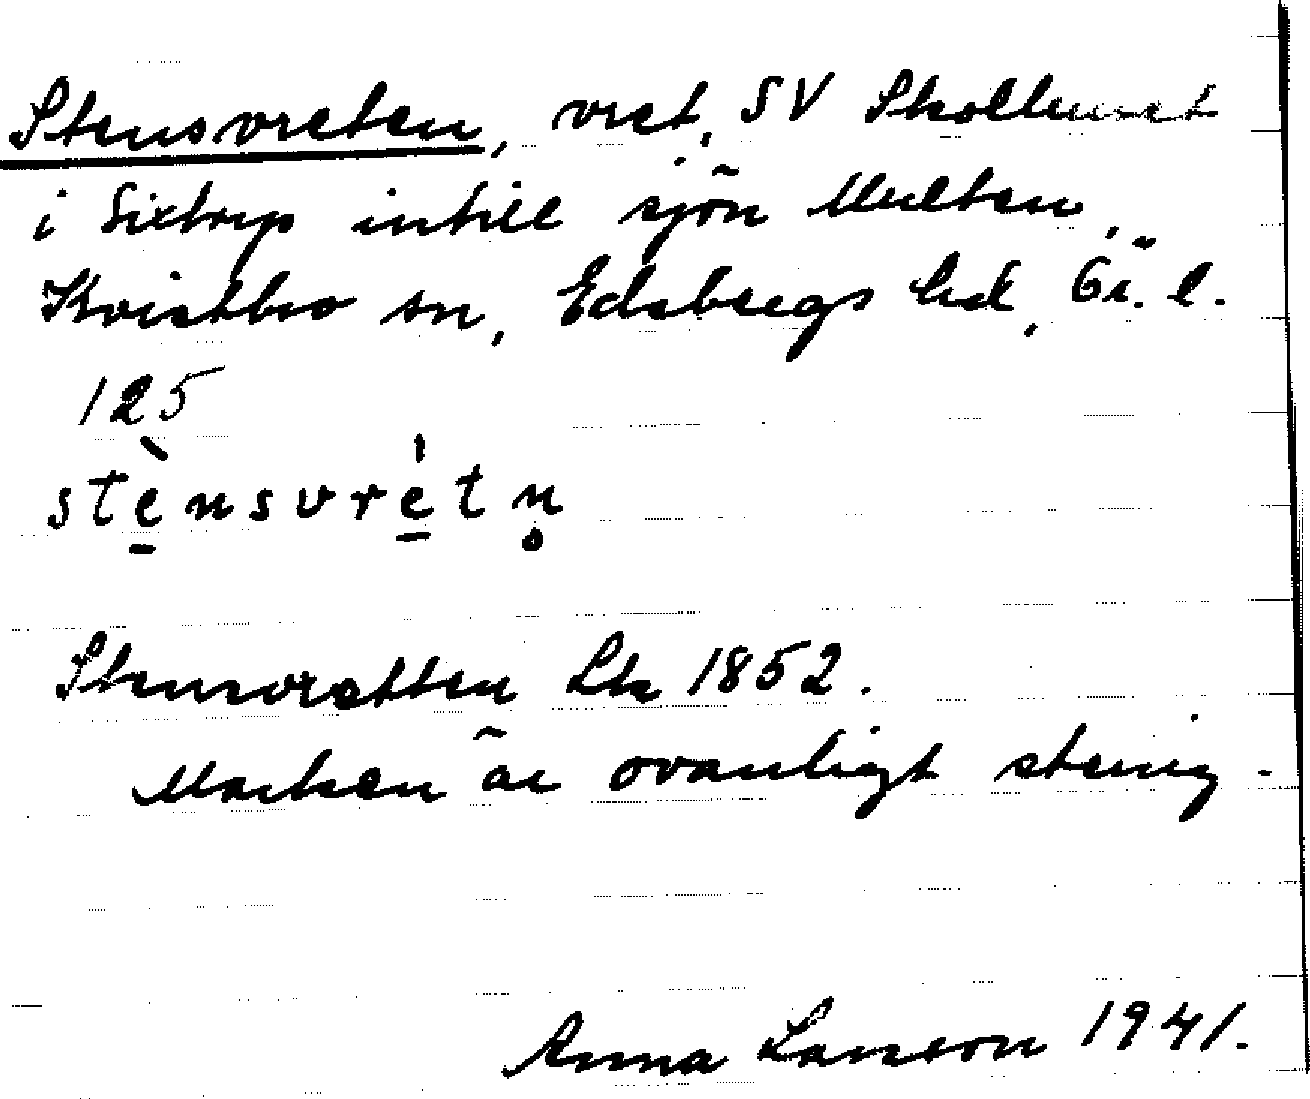 Stensvreten, vret, SV Skolhuset
i Sixtorp intill sjön Multen,
Kvistbro sn, Edsbergs hd, Ör. l.
125
stènsvrétn̥
Stensvretten Lk 1852.
Marken är ovanligt stenig.
Anna Larsson 1941.